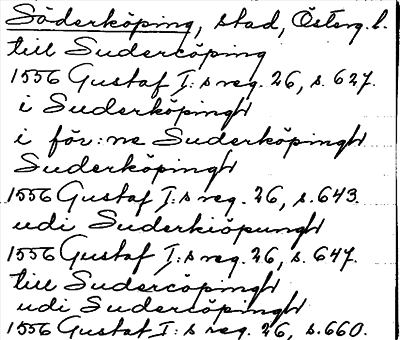 Söderköping, stad, Österg. l.
till Sudercöping
1556 Gustaf I:s reg. 26, s. 627.
i Suderköpingh
i för:ne Suderköpingh
Suderköpingh
1556 Gustaf I:s reg. 26, s. 643.
udi Suderkiöpungh
1556 Gustaf I:s reg. 26, s. 647.
till Sudercöpingh
udi Sudercöpingh
1556 Gustaf I:s reg. 26, s. 660.